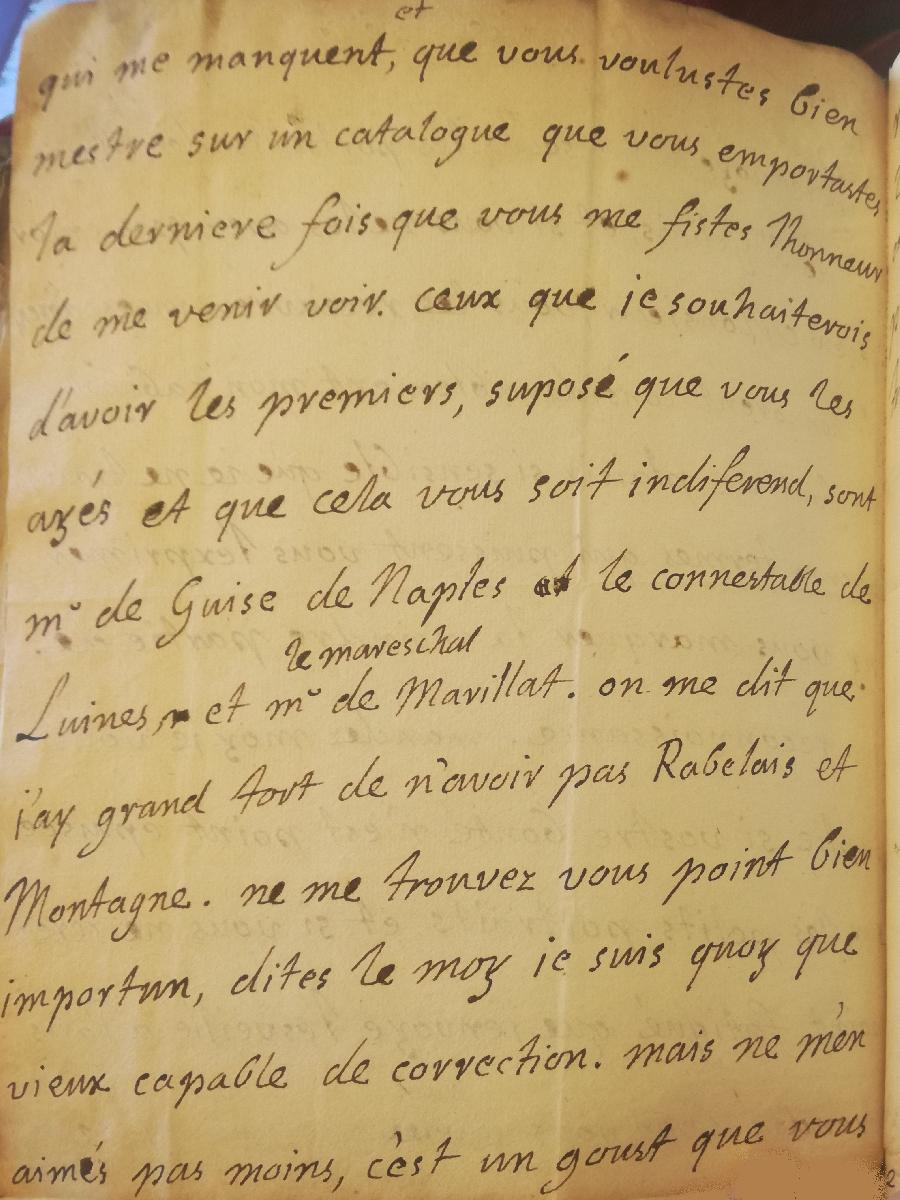 et
qui me manquent, que vous voulustes bien
mestre sur un catalogue que vous emportastes
la derniere fois que vous me fistes lhonneur
de me venir voir. ceux que ie souhaiterois
d'avoir les premiers, suposé que vous les
ayés et que cela vous soit indiferend, sont
mr de Guise de Naples et le connestable de
le mareschal
Luines, et mr de Marillat. on me dit que
i'ay grand tort de n'avoir pas Rabelais et
Montagne. ne me trouvez vous point bien
importun, dites le moy ie suis quoy que
vieux capable de correction. mais ne m'en
aimés pas moins, c'est un goust que vous